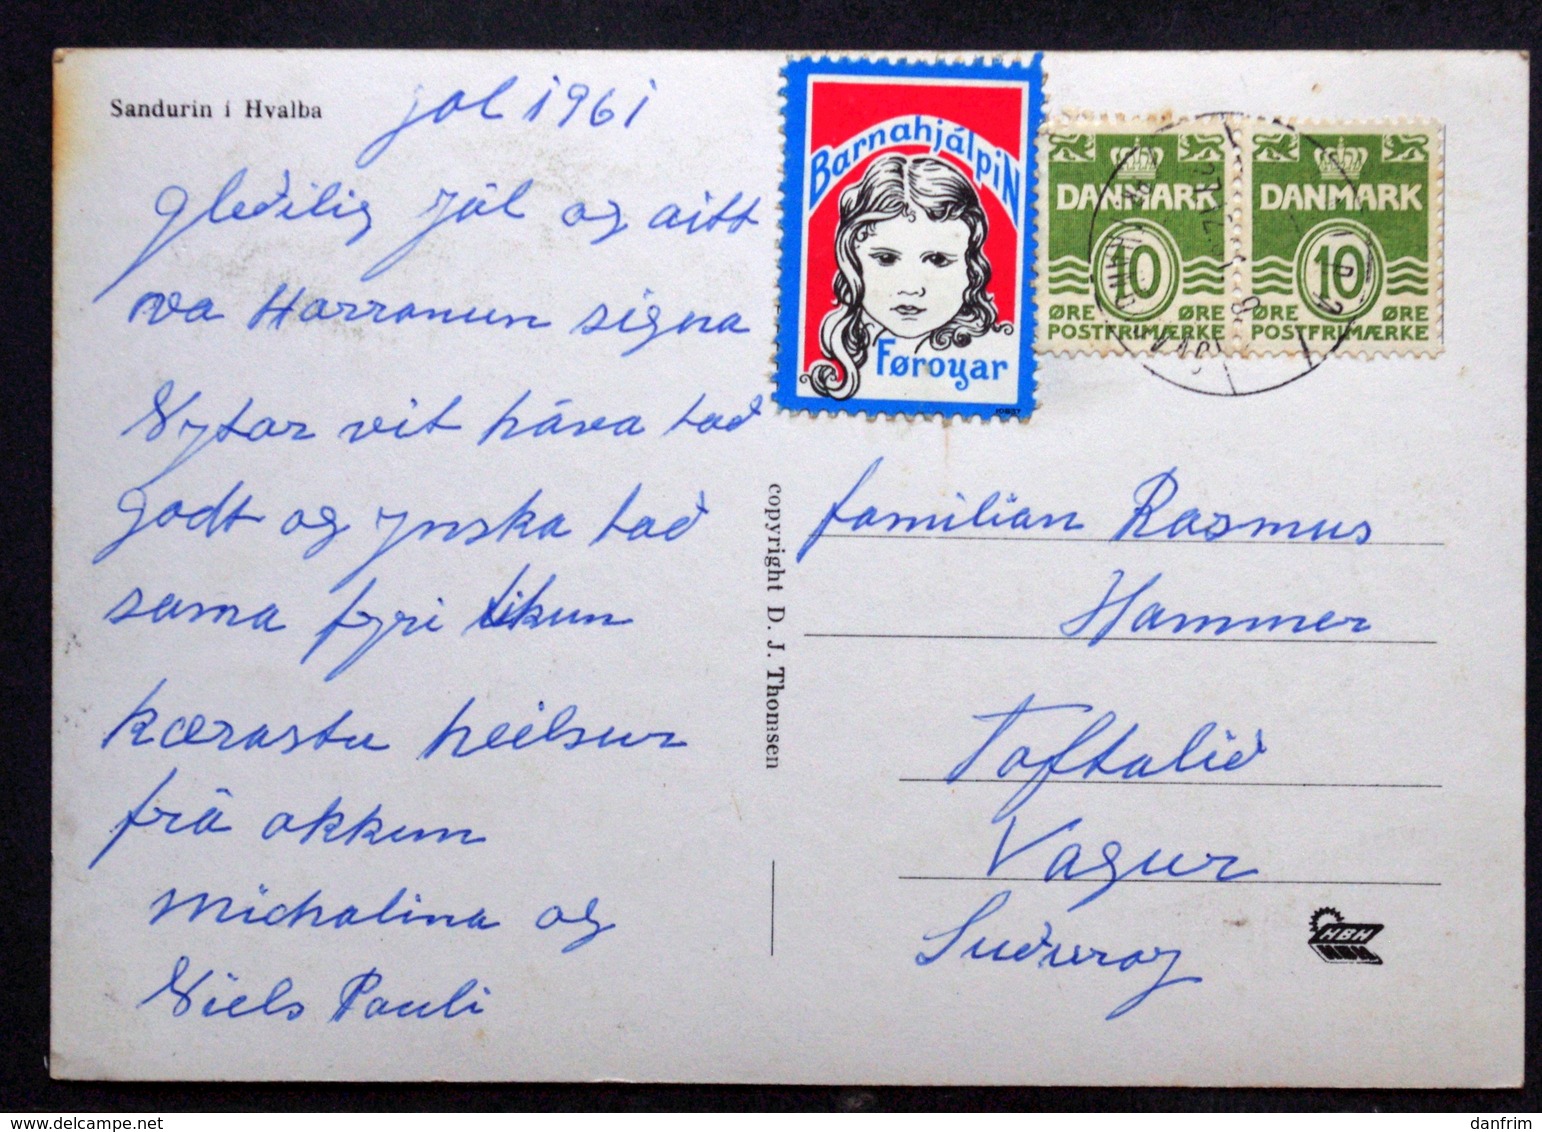 Sandurin í Hvalba
jol 1961
gleðilig jól og aitt
Harranun signa
Nytar vit háva tað
godt og ynska tað
sama fyri tikun
kærastu heilsur
frá okkum
Michalina og
Niels Pauli
copyright D. J. Thomsen
BarnahjálpiN
Føroyar
DANMARK
10
ØRE ØRE
POSTFRIMÆRKE
DANMARK
10
ØRE ØRE
POSTFRIMÆRKE
familian Rasmus
Hammer
Toftalið
Vagur
Suðuroy
HBH
danfrim